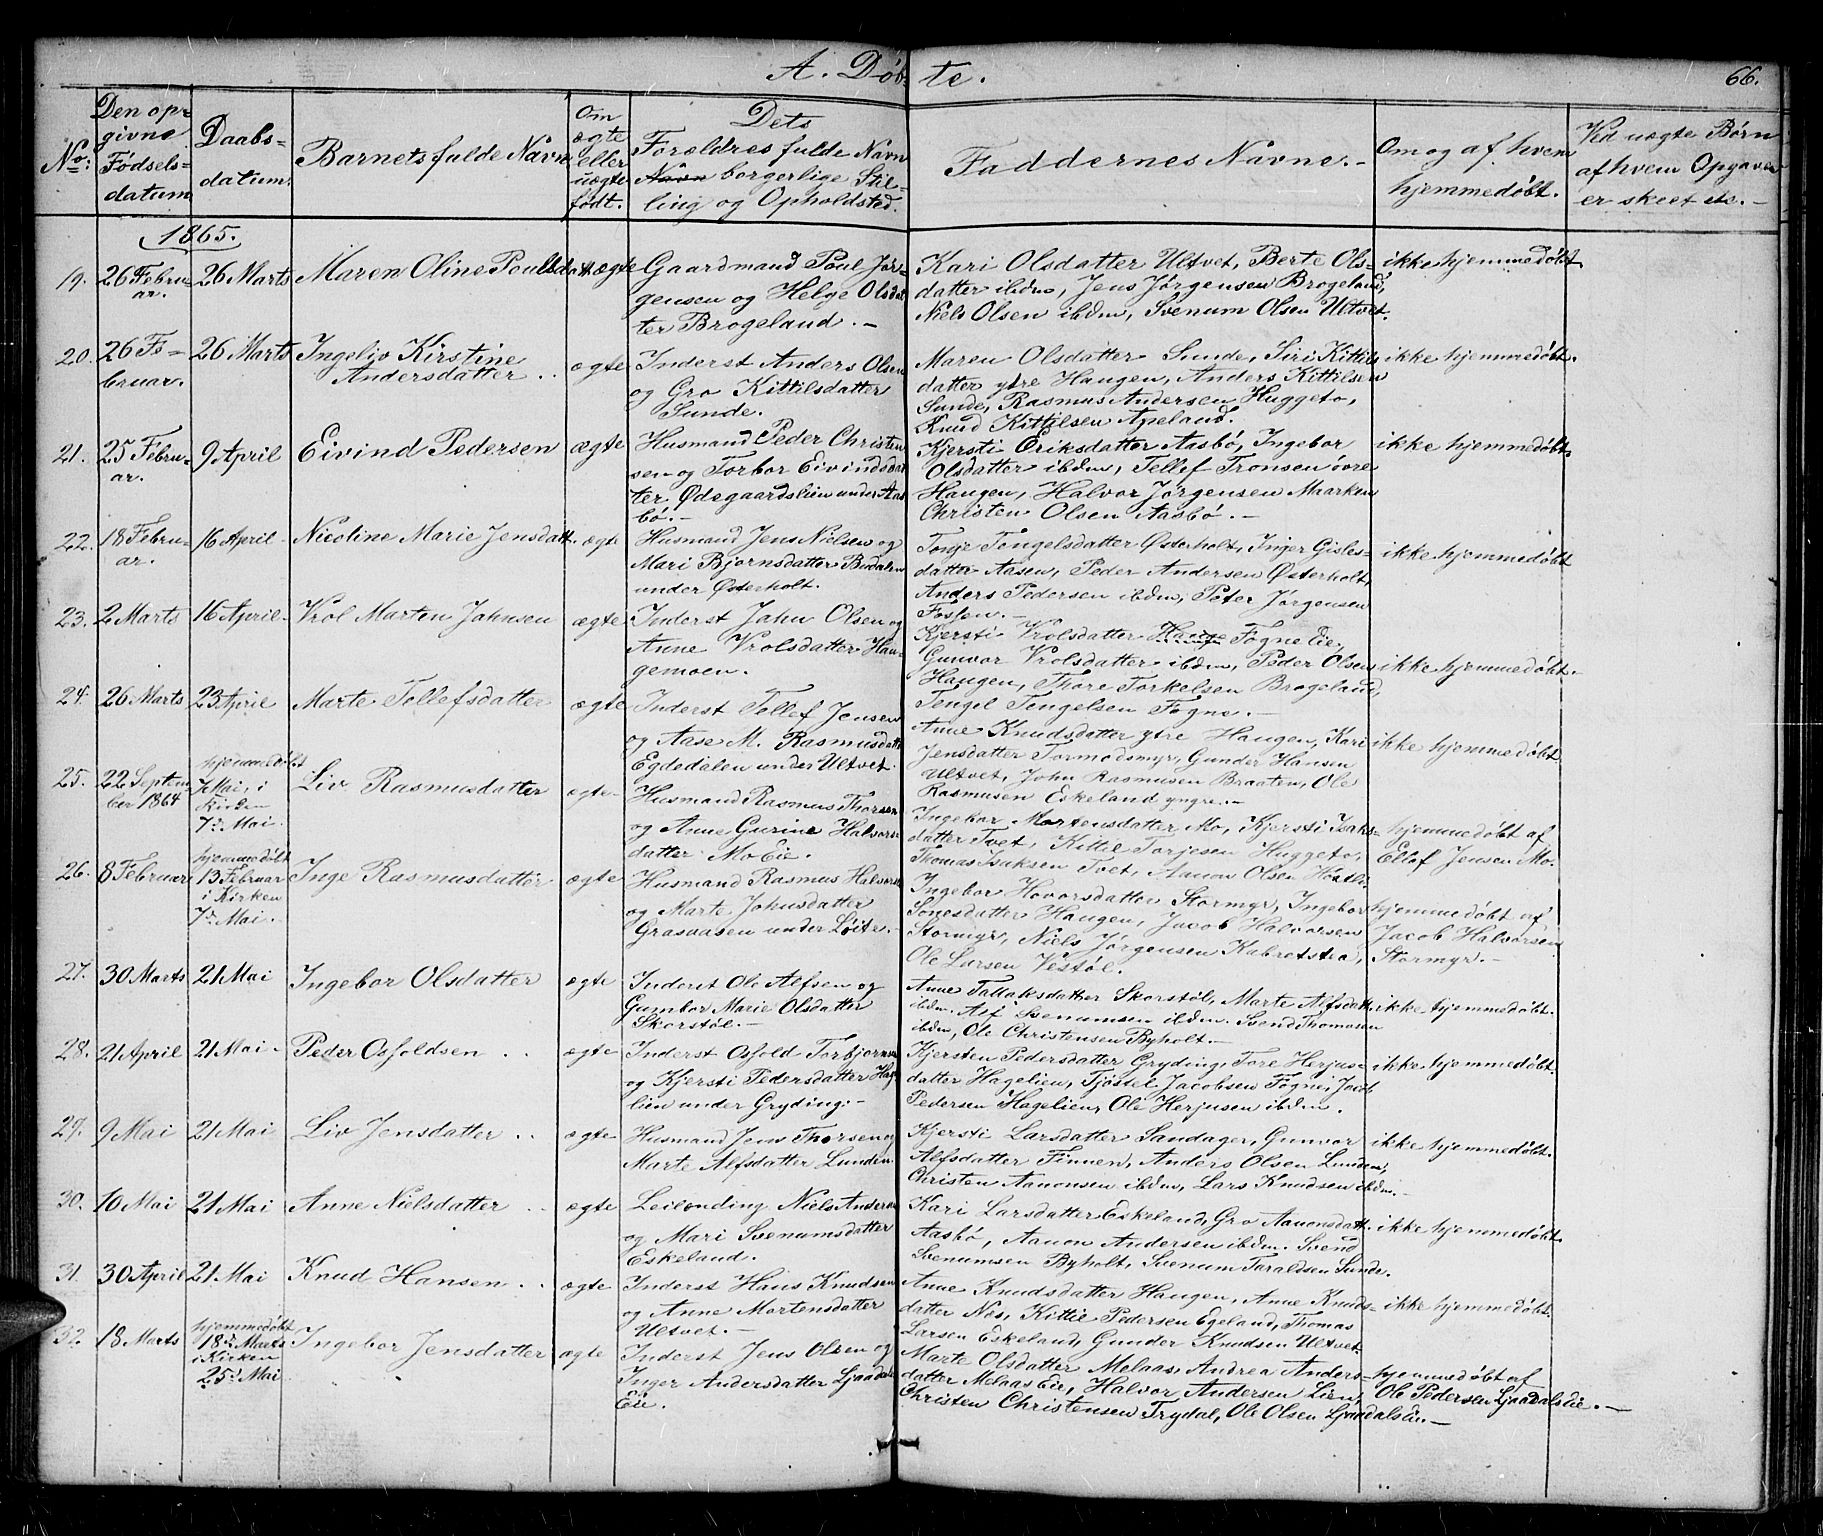 A. Døbte.
66.
No: Den opgivne Fødselsdatum Daabsdatum. Barnets fulde Navn Om ægte eller uægte født. Dets Forældres fulde Navn borgerlige Stilling og Opholdsted. Faddernes Navne.- Om og af hvem hjemmedøbt. Ved uægte Børn af hvem Opgaven er skeet etc.-
1865.
19. 26 Februar. 26 Marts Maren Oline Poulsdatt. ægte Gaardmand Poul Jør-
gensen og Helge Olsdat
ter Brogeland.-
Kari Olsdatter Ultvet, Berte Ols-
datter ibdm, Jens Jørgensen Brogeland,
Niels Olsen ibdm, Svenum Olsen Ultvet.
ikke hjemmedøbt
20. 26 Fe-
bruar. 26 Marts Ingeliv Kirstine
Andersdatter.. ægte Inderst Anders Olsen
og Gro Kittilsdatter
Sunde.
Maren Olsdatter Sunde, Siri Kittils
datter ytre Haugen, Anders Kittilsen
Sunde, Rasmus Andersen Huggeto,
Knud Kittilsen Apeland.
ikke hjemmedøbt.
21. 25 Febru-
ar. 9 April Eivind Pedersen ægte Husmand Peder Christen
sen og Torbor Eivindsdat
ter Ødegaardslien under Aas
bø.-
Kjersti Eriksdatter Aasbø, Ingebor
Olsdatter ibdm, Tellef Tronsen øvre
Haugen, Halvor Jørgensen Maarken
Christen Olsen Aasbø.-
ikke hjemmedøbt.
22. 18 Febru-
ar. 16 April Nicoline Marie Jensdatt. ægte Husmand Jens Nielsen og
Mari Bjørnsdatter Budalen
under Østerholt.
Tonje Tengelsdatter Østerholt, Inger Gisles-
datter Aasen, Peder Andersen Østerholt,
Anders Pedersen ibdm, Peter Jørgensen
Fossen.-
ikke hjemmedøbt
23. 2 Marts 16 April. Vrol Marten Johnsen ægte Inderst John Olsen og
Anne Vrolsdatter Hau-
gemoen.
Kjersti Vrolsdatter Haugen Fogne Eie,
Gunvor Vrolsdatter ibdm, Peder Olsen
Haugen, Thore Torkelsen Brogeland,
Tengel Tengelsen Fogne.-
ikke hjemmedøbt.
24. 26 Marts 23 April Marte Tellefsdatter ægte Inderst Tellef Jensen
og Aase M. Rasmusdatt
Egdedalen under Ultvet.
Anne Knudsdatter ytre Haugen, Kari
Jensdatter Tormodsmyr, Gunder Hansen
Ultvet, John Rasmusen Braaten, Ole
Rasmusen Eskeland yngre.-
ikke hjemmedøbt
25. 22 Septem
ber 1864 hjemmedøbt
7 Mai, i
Kirken
7de Mai. Liv Rasmusdatter ægte Husmand Rasmus Thorsen
og Anne Gurine Halvors-
datter Mo Eie.
Ingebor Mortensdatter Mo, Kjersti Isaks-
datter Tvet, Kittil Torjesen Huggeto,
Thomas Isaksen Tvet, Aanon Olsen
hjemmedøbt af
Ellef Jensen Mo.
26. 8 Februar hjemmedøbt
13 Februar
i Kirken
7de Mai. Inge Rasmusdatter ægte Husmand Rasmus Halvorsen
og Marte Johnsdatter
Grasaasen under Løite.-
Ingebor Hovorsdatter Stormyr, Ingebor
Sonesdatter Haugen, Jacob Halvorsen
Stormyr, Niels Jørgensen Kabretstra,
Ole Larsen Vestøl.
hjemmedøbt af
Jacob Halvorsen
Stormyr.-
27. 30 Marts 21 Mai Ingebor Olsdatter ægte Inderst Ole Alfsen og
Gunbor Marie Olsdatter
Skorstøl.-
Anne Tallaksdatter Skorstøl, Marte Alfsdatt
ibdm. Alf Svenumsen ibdm. Svend Thomasen
ibdm, Ole Christensen Byholt.-
ikke hjemmedøbt.
28. 21 April 21 Mai. Peder Osfoldsen.. ægte Inderst Osfold Torbjørnsen
og Kjersti Pedersdatter Hage
lien under Gryding.-
Kjersten Pedersdatter Gryding, Tore Herjus-
datter Hagelien, Tjøstel Jacobsen Fogne, Jacob
Pedersen Hagelien, Ole Herjusen ibdm.
ikke hjemmedøbt.
29. 9 Mai 21 Mai Liv Jensdatter.. ægte Husmand Jens Thorsen og
Marte Alfsdatter Lunden.
Kjersti Larsdatter Sandager, Gunvor
Alfsdatter Finnen, Anders Olsen Lunden,
Christen Aanonsen ibdm, Lars Knudsen ibdm.-
ikke hjemmedøbt.
30. 10 Mai 21 Mai Anne Nielsdatter.. ægte Leilænding Niels Andersen
og Mari Svenumsdatter
Eskeland.
Kari Larsdatter Eskeland, Gro Aanonsdatt.
Aasbø, Aanon Andersen ibdm. Svend
Svenumsen Byholt, Svenum Taraldsen Sunde.
ikke hjemmedøbt.
31. 30 April 21 Mai Knud Hansen.. ægte Inderst Hans Knudsen
og Anne Mortensdatter
Ultvet.-
Anne Knudsdatter Haugen, Anne Knuds-
datter Nes, Kittil Pedersen Egeland, Thomas
Larsen Eskeland, Gunder Knudsen Ultvet
ikke hjemmedøbt.
32. 18 Marts hjemmedøbt
18de Marts
i Kirken
25de Mai Ingebor Jensdatter ægte Inderst Jens Olsen og
Inger Andersdatter Ljaadals
Eie.
Marte Olsdatter Melaas, Andrea Anders-
datter Melaas Eie, Halvor Andersen Lien,
Christen Christensen Trydal, Ole Olsen Ljaadalseie.-
hjemmedøbt af
Ole Pedersen Ljaadalseie.-